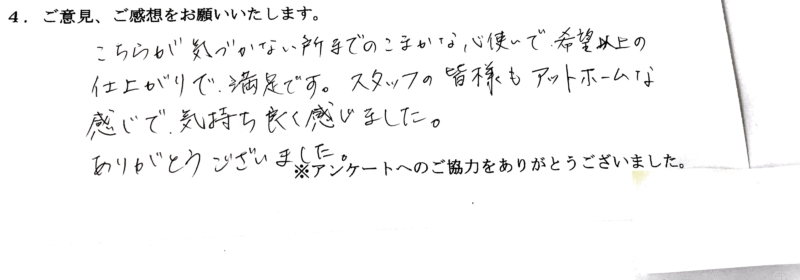 4．ご意見、ご感想をお願いいたします。
こちらが気づかない所までのこまかな心使いで、希望以上の
仕上がりで、満足です。スタッフの皆様もアットホームな
感じで、気持ち良く感じました。
ありがとうございました。
※アンケートへのご協力をありがとうございました。